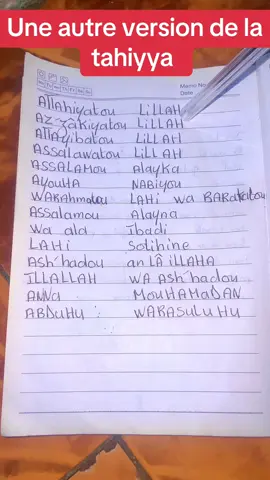 Une autre version de la
tahiyya
Date
Allahiyatou LiLLAH
AZ-zakiyatou LiLLAH
ATTAyibatou LiLLAH
ASSAlawatou LiLLAH
ASSALAMOU Alayka
AyouHA NABiyou
WARAhmatou LAHi wa BARAkatou
Assalamou Alayna
Wa ala Ibadi
LAHi Solihine
ASH'hadou an LÂ iLLAHA
ILLALLAH WA ASH'hadou
ANNA MOUHAMADAN
ABDUHU : WARASULUHU